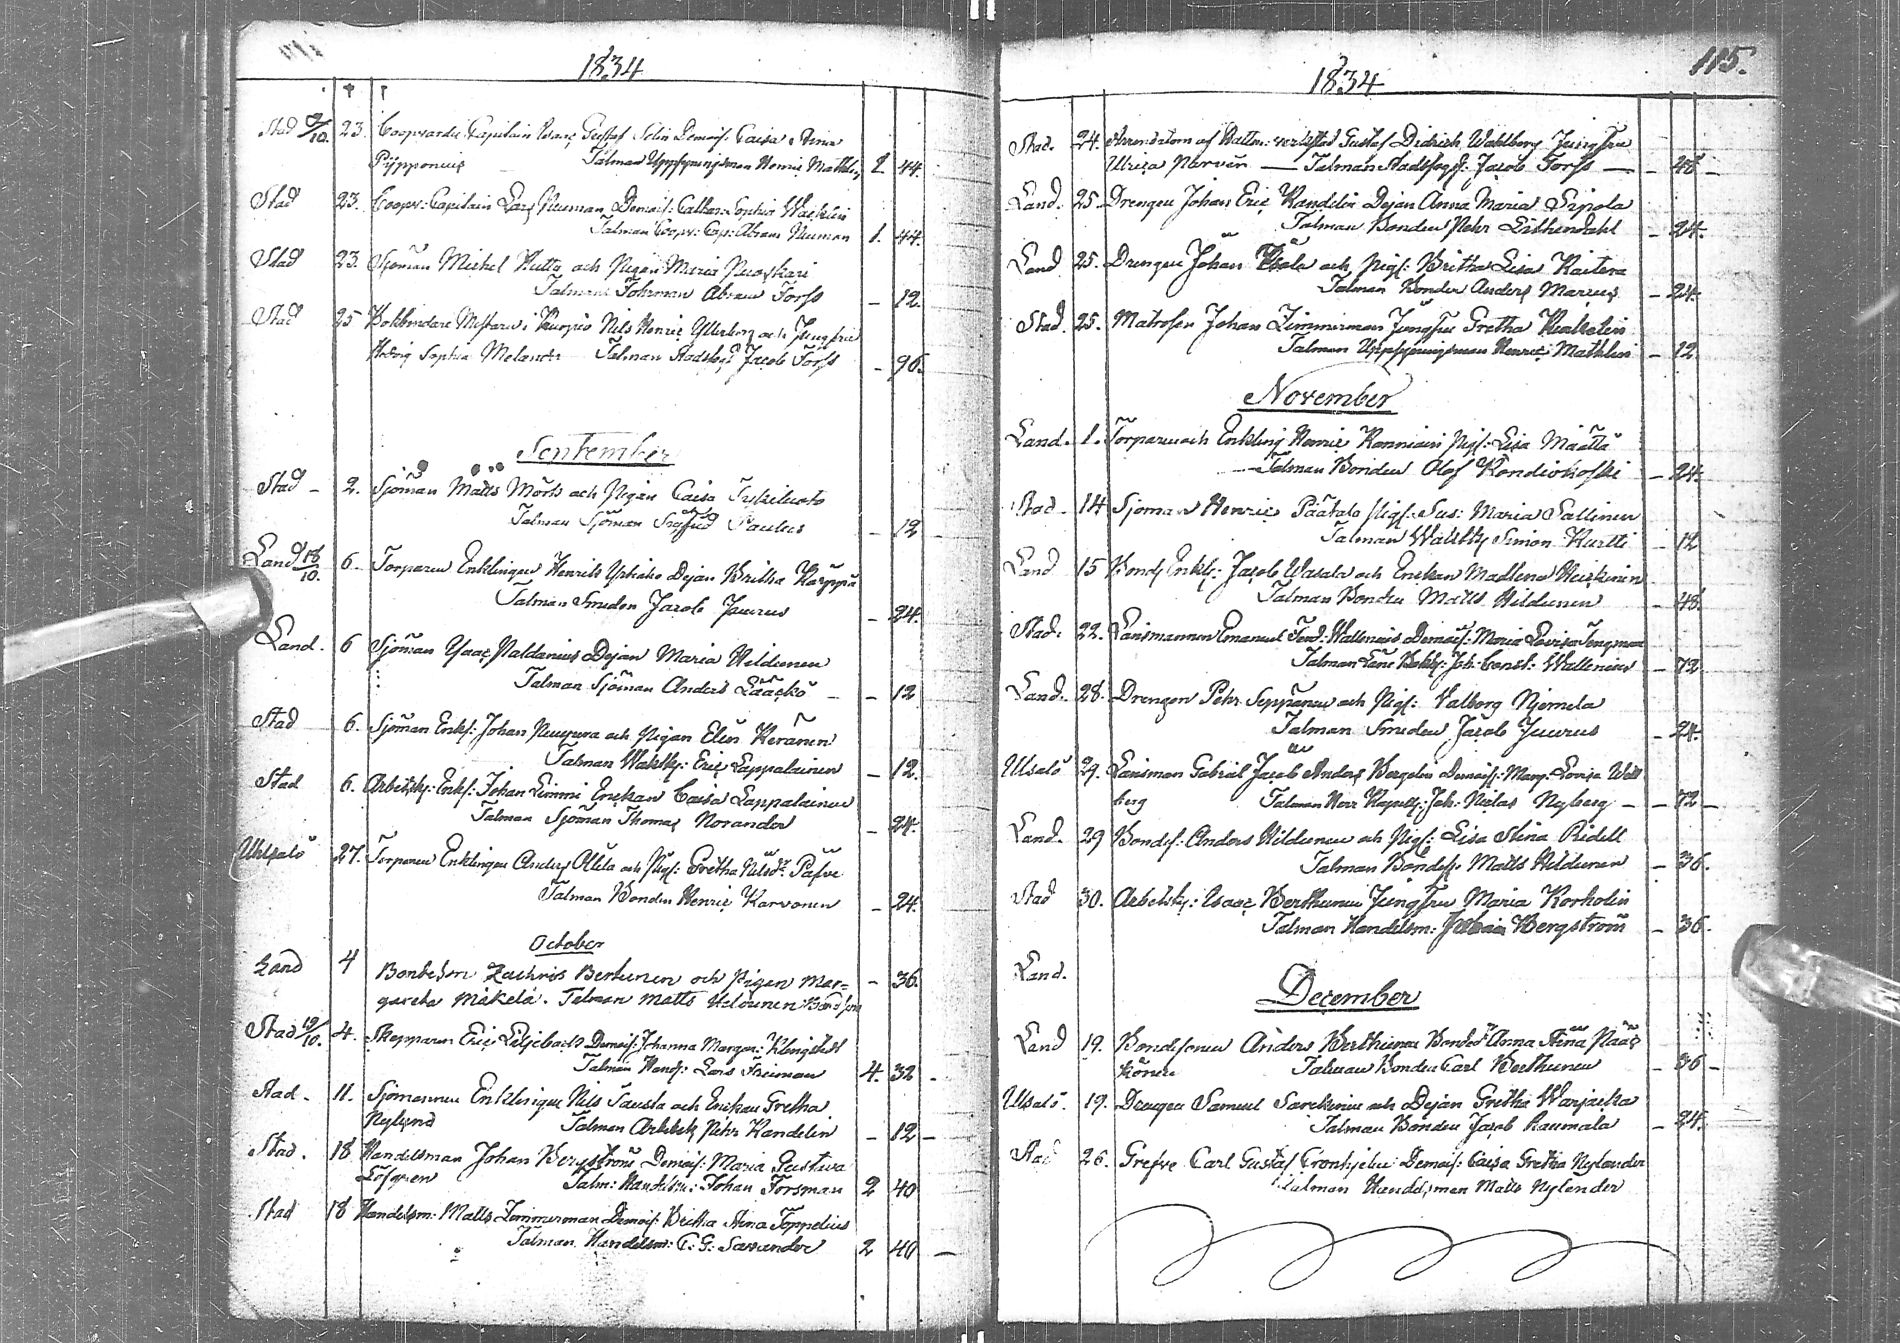 1834
Stad 9/10. 23. Coopvardie Capitain Isaac Gustaf Selin Demois: Caisa Stina
Pijpponius Talman Uppsyningsman Henric Mathlin 1 44.
Stad 23. Coopv: Capitain Lars Neuman Demois: Cathar: Sophia Wacklin
Talman Coopv: Cap: Abram Neuman 1. 44.
Stad 23. Sjöman Michel Hutta och Pigan Maria
Talman Forman Abram Forss – 12.
Stad 25 Bokbindare Mästaren i Kuopio Nils Henric och Jungfru
Hedvig Sophia Melander Talman Stadsfogd Jacob Forss – 96.
September
Stad – 2. Sjöman Matts Mörk och Pigan Caisa
Talman Sjöman Sigfrid Paulus – 12
Land 18/10. 6. Torparen Enklingen Henrik Dejan Britha Karppa
Talman Smeden Jacob Juurus – 24.
Land. 6 Sjöman Isaac Paldanius Dejan Maria Hildunen
Talman Sjöman Anders Lääckö – – 12
Stad 6. Sjöman Enkl: Johan och Pigan Elin Keränen
Talman Eric Lappalainen – 12.
Stad 6. Arbetsk: Enkl: Johan Limmi Enckan Caisa Lappalainen
Talman Sjöman Thomas Norander – 24.
Uhlealö 27. Torparen Enklingen Anders Alila och Pigl: Gretha Nilsdr Päfve
Talman Bonden Henric Karvonen – 24.
October
Land 4 Bondeson Zachris Bertunen och Pigen Mar= – 36.
gareta Mäkelä. Talman Matts Hildunen Bondson
Stad 19/10. 4. Skepparen Eric Liljebäck Demois: Johanna Margar: Klingstedt
Talman Hand: Lars Friman 4. 32 –
Stad – 11. Sjömannen Enklingen Nils Sausta och Enckan Gretha
Nylund Talman Arbetsk Pehr Kandelin – 12 –
Stad. 18 Handelsman Johan Bergström Demois: Maria Gustava
Löfgren Talm: Handelsm: Johan Forsman 2 40
Stad 18 Handelsm: Matts Zimmerman Demois: Britha Stina Toppelius
Talman Handelsm: C: G: Savander 2 40 –
115.
1834
Stad. 24. Gustaf Didrich Wahlberg Jungfru
Ulrica Norvin — Talman Stadsfogd: Jacob Forss — – 48 –
Land. 25. Drengen Johan Eric Kandelin Dejan Anna Maria Sipola
Talman Bonden Pehr Lithendahl – 24.
Land 25. Drengen Johan och Pigl: Britha Lisa Kaitera
Talman Bonden Anders Marcus – 24.
Stad. 25. Matrosen Johan Zimmerman Jungfru Gretha
Talman Uppsyningsman Henric Mathlin – 12
November
Land. 1. Torparen och Enkling Henric Konniain Pigl: Lisa Määttä
Talman Bonden Olof Kondiokoski – 24.
Stad. 14 Sjöman Henric Päätalo Pigl: Sus: Maria Sallinen
Talman Simon Kurtti – 12
Land 15 Bond Enkl: Jacob Wasala och Enckan Madlena Heickinen
Talman Bonden Matts Hildunen – 48.
Stad. 22. Länsmannen Emanuel Ferd: Wallenius Demois: Maria Lovisa Tengman
Talman Läns Bokh: Joh: Const: Wallenius – 72.
Land. 28. Drengen Pehr Seppänen och Pigl: Valborg Njemela
Talman Smeden Jacob Juurus – 24.
Uhlealö 29. Länsman Gabriel Jacob Anders Bergelin Demois: Marg: Lovisa Well
berg Talman Herr Kapell: Joh: Niclas Nyberg – – 72 –
Land. 29 Bonds: Anders Hildunen och Pigl: Lisa Stina Ridell
Talman Bonds: Matts Hildunen – 36.
Stad 30. Arbetsk: Isaac Berthunen Jungfru Maria Korholin
Talman Handelsm: Johan Bergström – 36.
Land.
December
Land 19. Bondesonen Anders Berthunen Bondedr Anna Stina Pääs
könen Talman Bonden Carl Berthunen – 36 –
Uhlealö. 19. Drengen Samuel Sarckinen och Dejan Gretha Warjacka
Talman Bonden Jacob Raumala – 24.
Stad 26. Grefve Carl Gustaf Cronhjelm Demois: Caisa Gretha Nylander
Talman Handelsman Matts Nylander